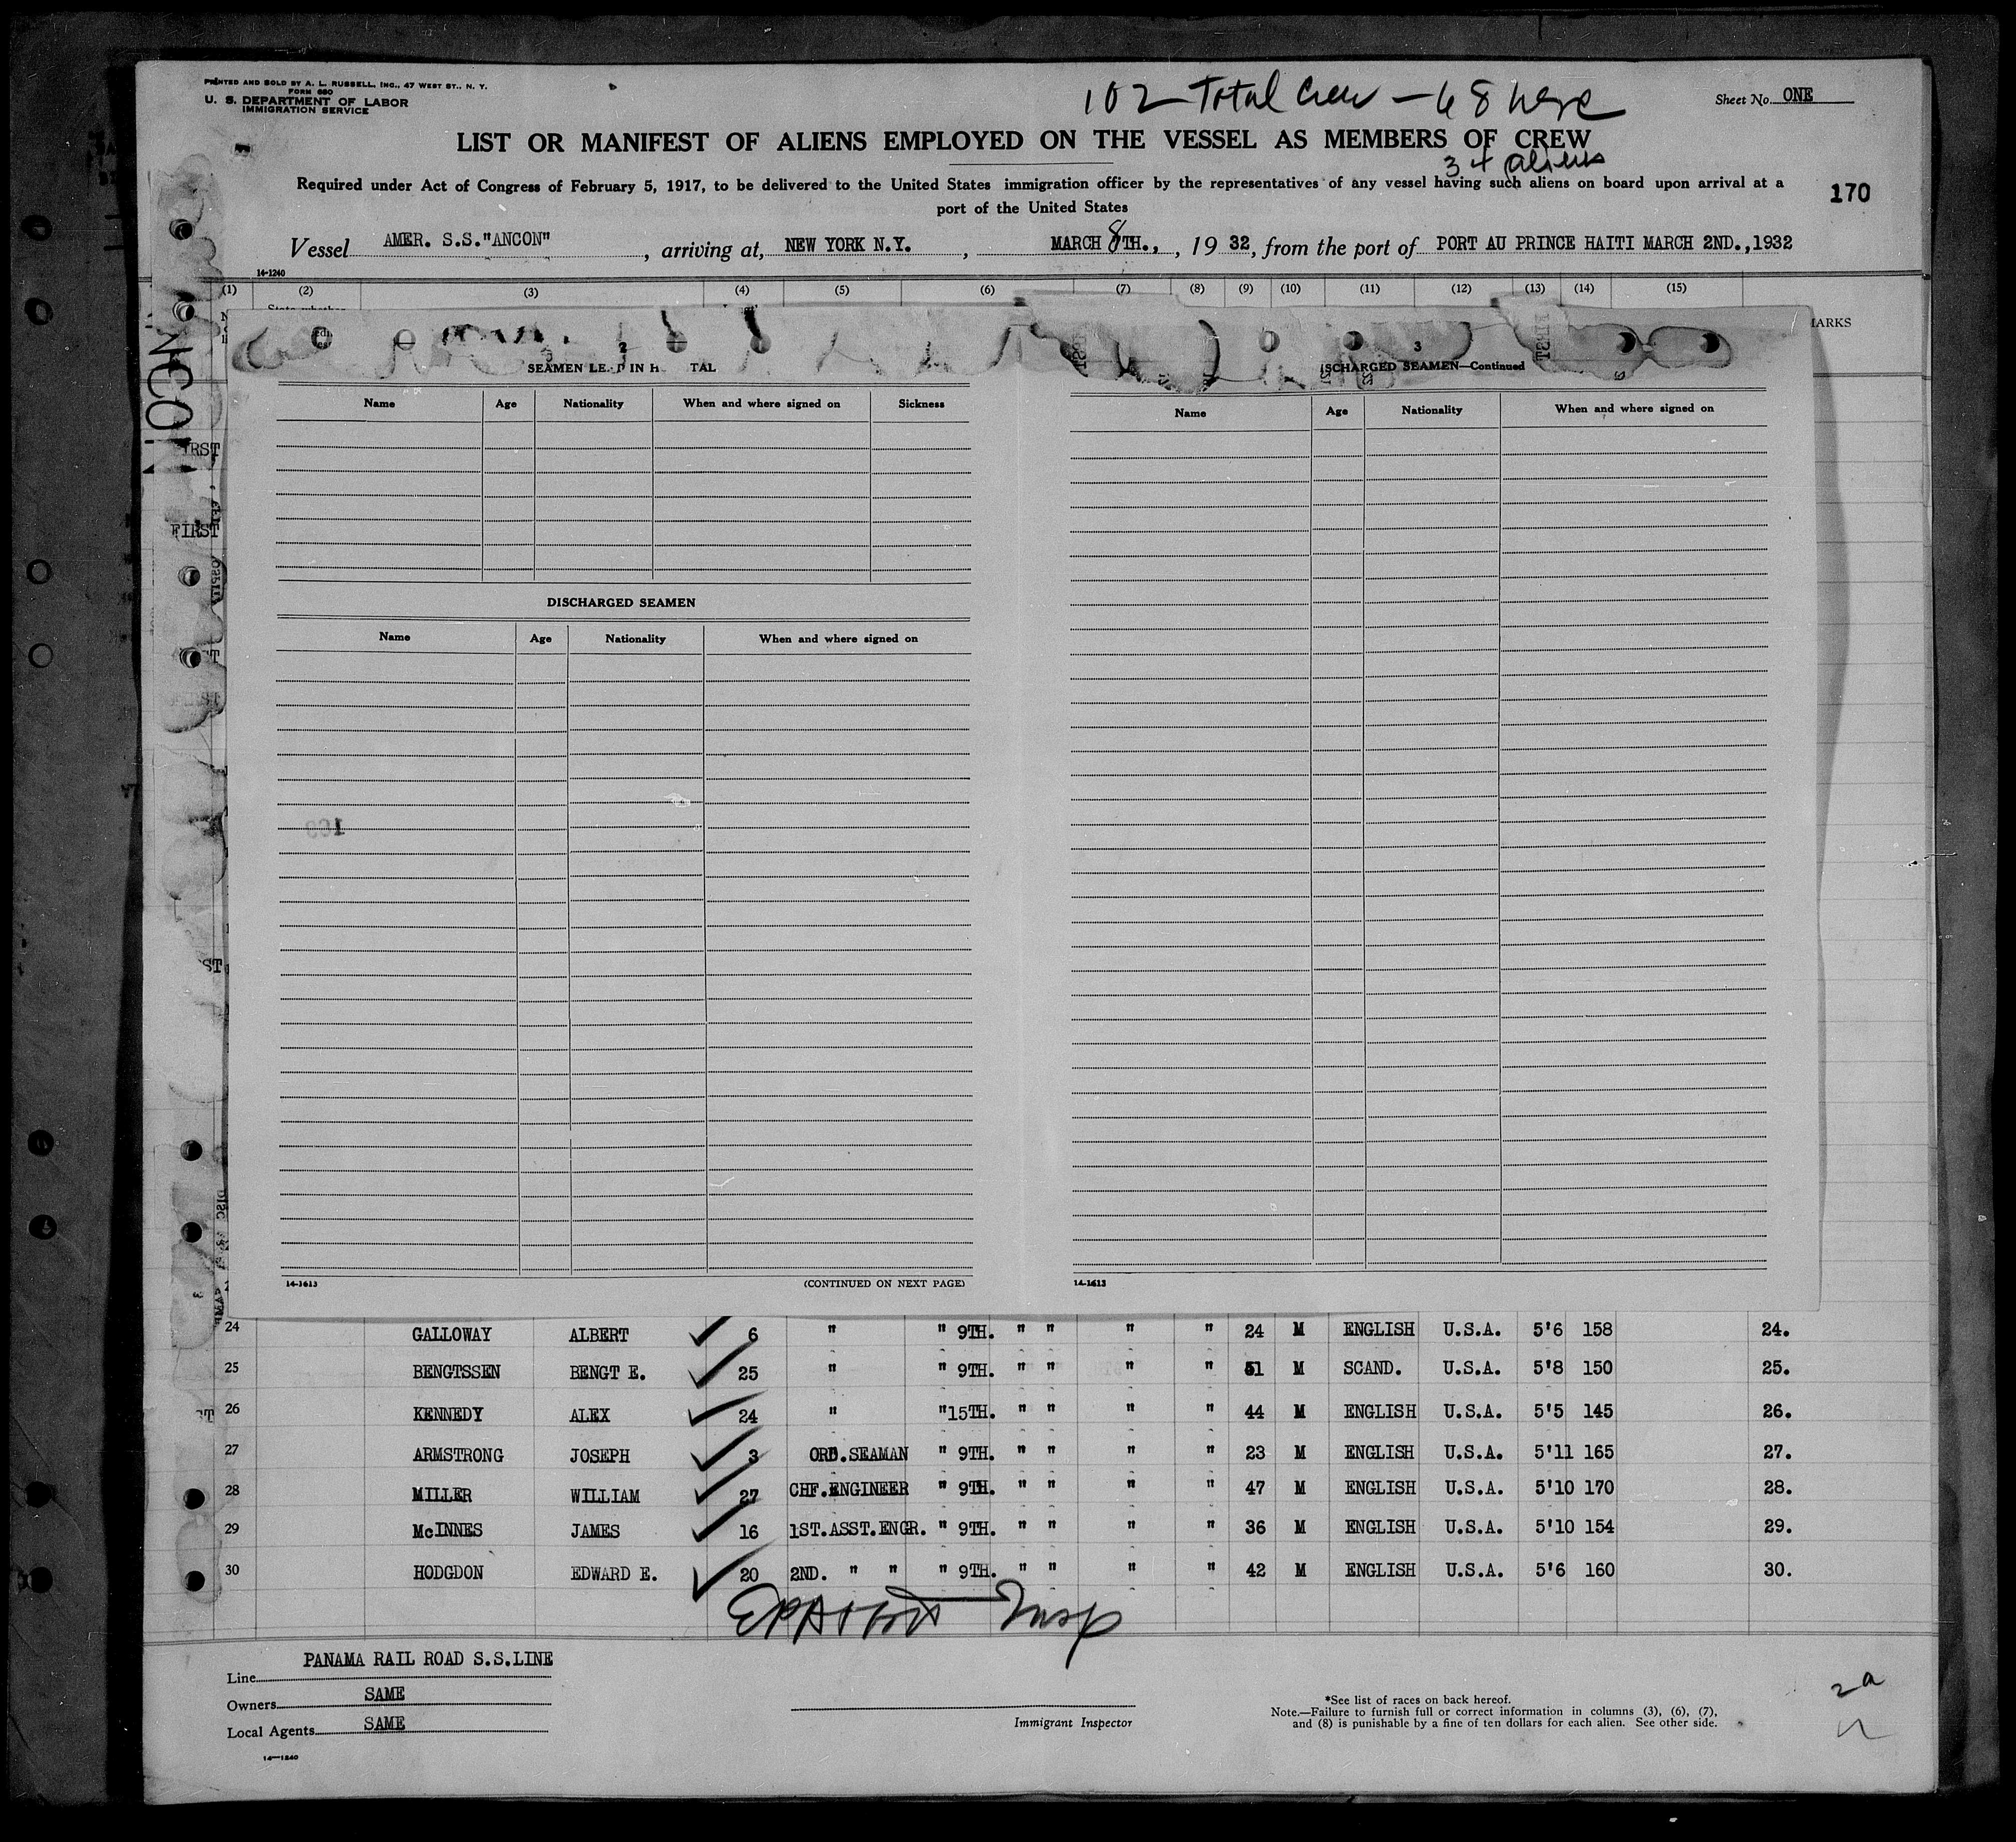 PRINTED AND SOLD BY A. L. RUSSELL, INC., 47 WEST ST., N. Y.
FORM 680
U. S. DEPARTMENT OF LABOR
IMMIGRATION SERVICE
102 Total Crew — 68 here
Sheet No. ONE
LIST OR MANIFEST OF ALIENS EMPLOYED ON THE VESSEL AS MEMBERS OF CREW
34 aliens
Required under Act of Congress of February 5, 1917, to be delivered to the United States immigration officer by the representatives of any vessel having such aliens on board upon arrival at a
port of the United States
170
Vessel AMER. S.S."ANCON", arriving at, NEW YORK N.Y., MARCH 8TH., 1932, from the port of PORT AU PRINCE HAITI MARCH 2ND.,1932
14-1240
(1) (2) (3) (4) (5) (6) (7) (8) (9) (10) (11) (12) (13) (14) (15)
2
3
DISCHARGED SEAMEN
SEAMEN LE IN H TAL
SCHARGED SEAMEN—Continued
Name Age Nationality When and where signed on Sickness
Name Age Nationality When and where signed on
DISCHARGED SEAMEN
Name Age Nationality When and where signed on
14-1613 (CONTINUED ON NEXT PAGE)
14-1613
24 GALLOWAY ALBERT 6 " " 9TH. " " " " 24 M ENGLISH U.S.A. 5'6 158 24.
25 BENGTSSEN BENGT E. 25 " " 9TH. " " " " 51 M SCAND. U.S.A. 5'8 150 25.
26 KENNEDY ALEX 24 " "15TH. " " " " 44 M ENGLISH U.S.A. 5'5 145 26.
27 ARMSTRONG JOSEPH 3 ORD.SEAMAN " 9TH. " " " " 23 M ENGLISH U.S.A. 5'11 165 27.
28 MILLER WILLIAM 27 CHF.ENGINEER " 9TH. " " " " 47 M ENGLISH U.S.A. 5'10 170 28.
29 McINNES JAMES 16 1ST.ASST.ENGR. " 9TH. " " " " 36 M ENGLISH U.S.A. 5'10 154 29.
30 HODGDON EDWARD E. 20 2ND. " " " 9TH. " " " " 42 M ENGLISH U.S.A. 5'6 160 30.
Insp
Line PANAMA RAIL ROAD S.S.LINE
Owners SAME
Local Agents SAME
14—1240
Immigrant Inspector
*See list of races on back hereof.
Note.—Failure to furnish full or correct information in columns (3), (6), (7),
and (8) is punishable by a fine of ten dollars for each alien. See other side.